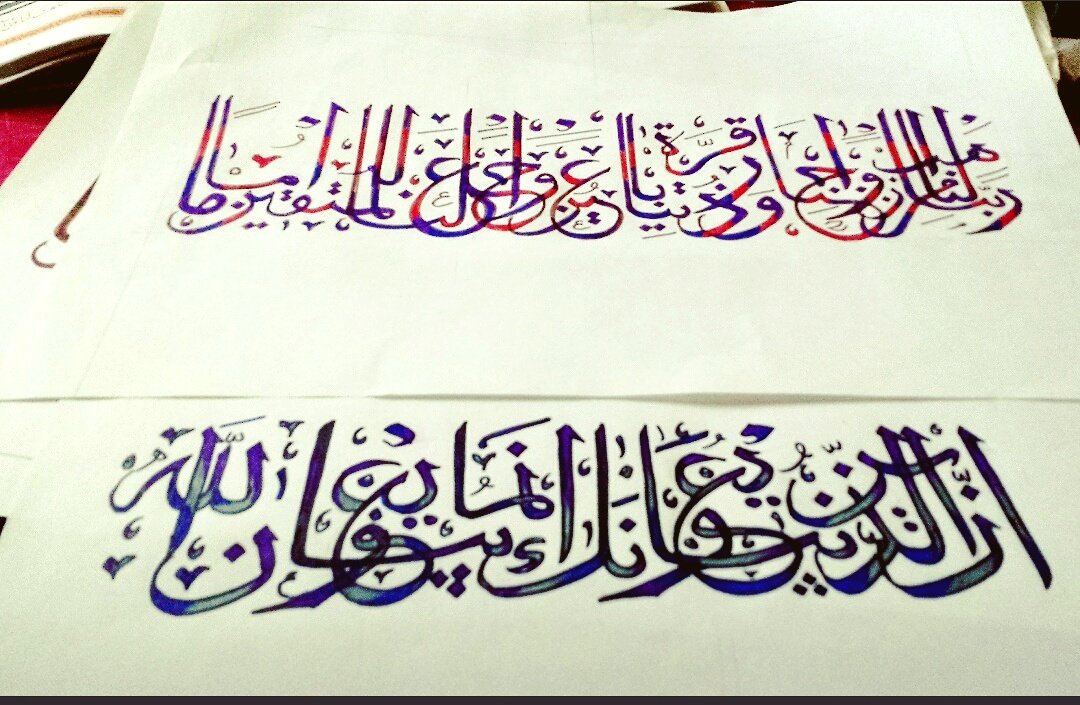 ربنا هب لنا من ازواجنا وذرياتنا قرة اعين واجعلنا للمتقين اماما
ان الذين يبايعونك انما يبايعون الله